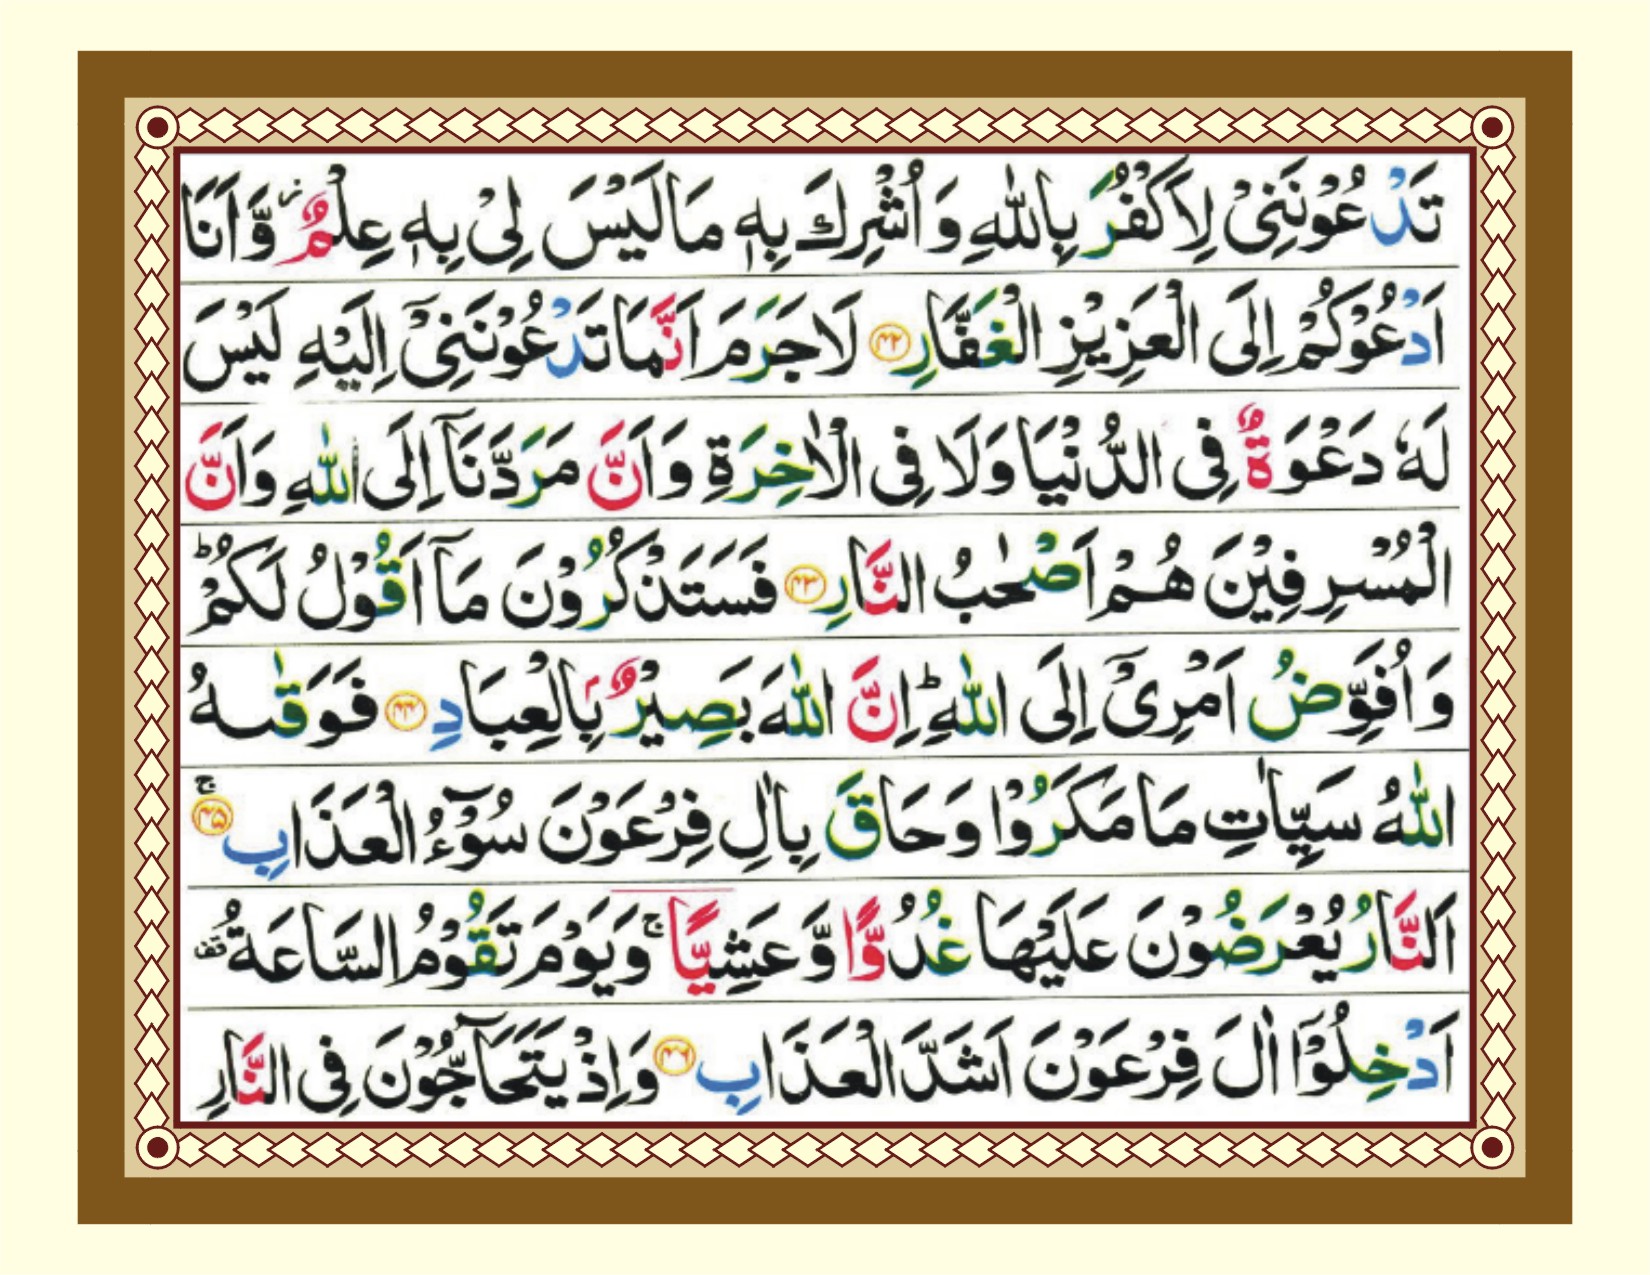 تَدْعُوْنَنِیْ لِاَكْفُرَ بِاللّٰهِ وَ اُشْرِكَ بِهٖ مَا لَیْسَ لِیْ بِهٖ عِلْمٌ٘ وَّ اَنَا
اَدْعُوْكُمْ اِلَى الْعَزِیْزِ الْغَفَّارِ ﴿۴۲﴾ لَا جَرَمَ اَنَّمَا تَدْعُوْنَنِیْۤ اِلَیْهِ لَیْسَ
لَهٗ دَعْوَةٌ فِی الدُّنْیَا وَ لَا فِی الْاٰخِرَةِ وَ اَنَّ مَرَدَّنَاۤ اِلَى اللّٰهِ وَ اَنَّ
الْمُسْرِفِیْنَ هُمْ اَصْحٰبُ النَّارِ ﴿۴۳﴾ فَسَتَذْكُرُوْنَ مَاۤ اَقُوْلُ لَكُمْ ؕ
وَ اُفَوِّضُ اَمْرِیْۤ اِلَى اللّٰهِ ؕ اِنَّ اللّٰهَ بَصِیْرٌۢ بِالْعِبَادِ ﴿۴۴﴾ فَوَقٰىهُ
اللّٰهُ سَیِّاٰتِ مَا مَكَرُوْا وَ حَاقَ بِاٰلِ فِرْعَوْنَ سُوْٓءُ الْعَذَابِ ﴿۴۵﴾ ۚ
اَلنَّارُ یُعْرَضُوْنَ عَلَیْهَا غُدُوًّا وَّ عَشِیًّا ۚ وَ یَوْمَ تَقُوْمُ السَّاعَةُ قف
اَدْخِلُوْۤا اٰلَ فِرْعَوْنَ اَشَدَّ الْعَذَابِ ﴿۴۶﴾ وَ اِذْ یَتَحَآجُّوْنَ فِی النَّارِ